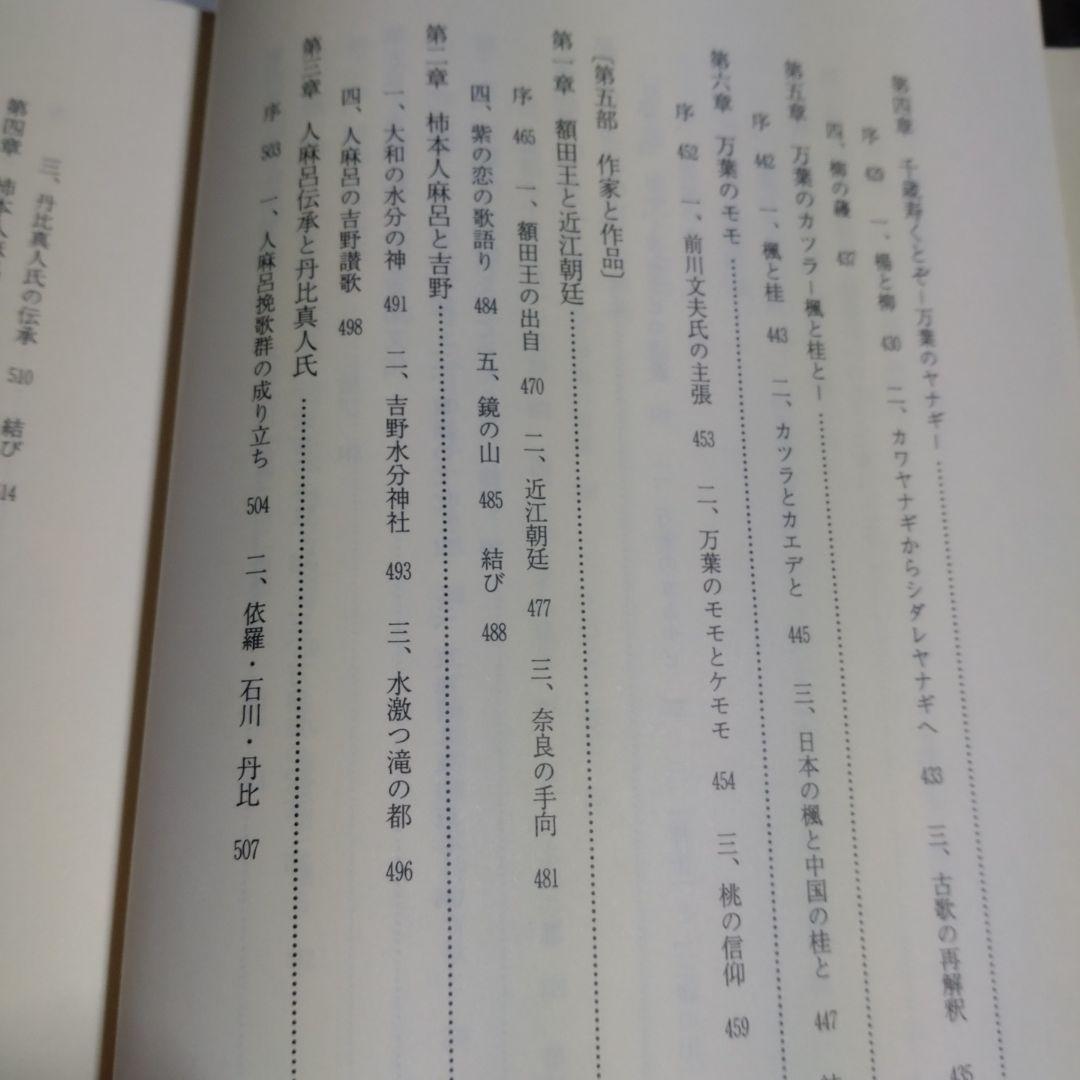 第四章　千歳寿くとぞー万葉のヤナギー
序　429　一、楊と柳　430　二、カワヤナギからシダレヤナギへ　433　三、古歌の再解釈　435
四、柳の蘰　437
第五章　万葉のカツラー楓と桂とー
序　442　一、楓と桂　443　二、カツラとカエデと　445　三、日本の楓と中国の桂と　447
第六章　万葉のモモ
序　452　一、前川文夫氏の主張　453　二、万葉のモモとケモモ　454　三、桃の信仰　459
〔第五部　作家と作品〕
第一章　額田王と近江朝廷
序　465　一、額田王の出自　470　二、近江朝廷　477　三、奈良の手向　481
四、紫の恋の歌語り　484　五、鏡の山　485　結び　488
第二章　柿本人麻呂と吉野
一、大和の水分の神　491　二、吉野水分神社　493　三、水激つ滝の都　496
四、人麻呂の吉野讃歌　498
第三章　人麻呂伝承と丹比真人氏
序　503　一、人麻呂挽歌群の成り立ち　504　二、依羅・石川・丹比　507
三、丹比真人氏の伝承　510　結び　514
第四章　柿本人麻